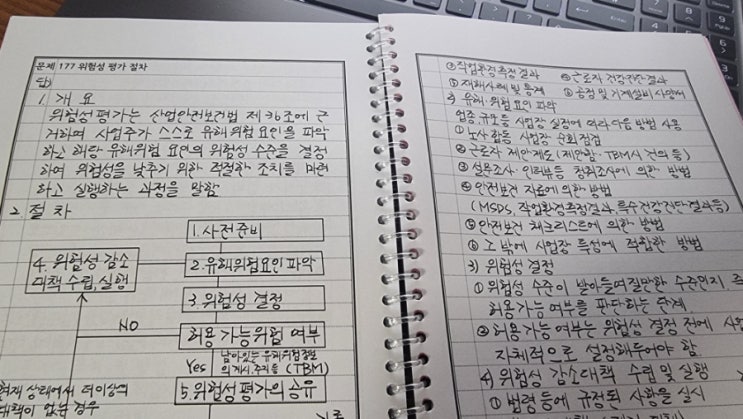 문제 177 위험성 평가 절차
답)
1. 개 요
위험성평가는 산업안전보건법 제36조에 근
거하여 사업주가 스스로 유해위험요인을 파악
하고 해당 유해위험 요인의 위험성 수준을 결정
하여 위험성을 낮추기 위한 적절한 조치를 마련
하고 실행하는 과정을 말함
2. 절 차
1. 사전준비
4. 위험성 감소
대책 수립, 실행
2. 유해위험요인 파악
3. 위험성 결정
NO
허용 가능위험 여부
Yes
남아있는 유해위험정보
의 게시, 주지 등 (TBM)
5. 위험성평가의 공유
현재 상태에서 더이상의
대책이 없는 경우
기록
③ 작업환경측정결과 ④ 근로자 건강진단 결과
⑤ 재해사례 및 통계 ⑥ 공정 및 기계설비 사양서
2) 유해·위험요인 파악
업종 규모등 사업장 실정에 따라 다음 방법 사용
① 노사 합동 사업장 순회점검
② 근로자 제안제도(제안함, TBM시 건의 등)
③ 설문조사·인터뷰등 청취조사에 의한 방법
④ 안전보건 자료에 의한 방법
(MSDS, 작업환경측정결과, 특수건강진단결과등)
⑤ 안전보건 체크리스트에 의한 방법
⑥ 그 밖에 사업장 특성에 적합한 방법
3) 위험성 결정
① 위험성 수준이 받아들여질만한 수준인지, 즉
허용가능 여부를 판단하는 단계
② 허용가능 여부는 위험성 결정 전에 사업
자체적으로 설정해두어야 함
4) 위험성 감소대책 수립 및 실행
① 법령 등에 규정된 사항을 실시